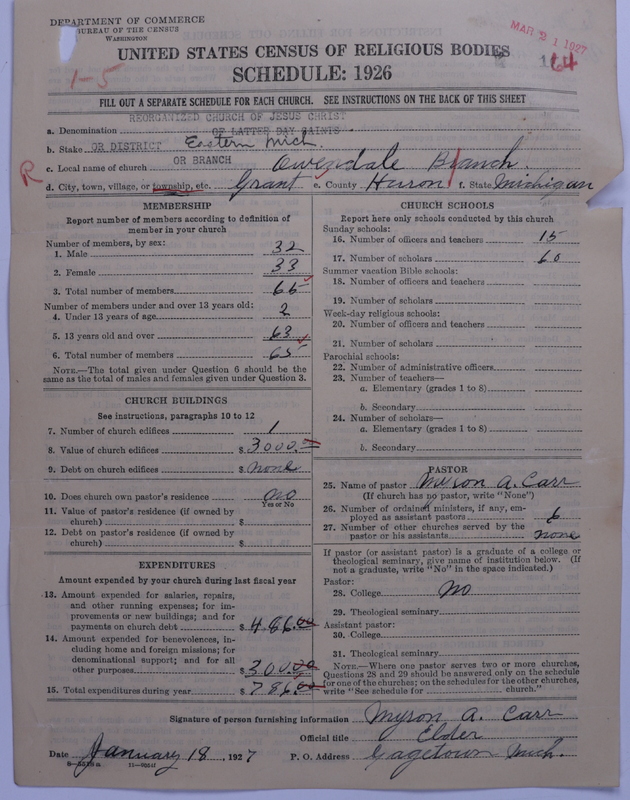 DEPARTMENT OF COMMERCE
BUREAU OF THE CENSUS
WASHINGTON
MAR 21 1927
1-5
164
UNITED STATES CENSUS OF RELIGIOUS BODIES
SCHEDULE: 1926
FILL OUT A SEPARATE SCHEDULE FOR EACH CHURCH. SEE INSTRUCTIONS ON THE BACK OF THIS SHEET
REORGANIZED CHURCH OF JESUS CHRIST
a. Denomination OF LATTER DAY SAINTS
b. Stake OR DISTRICT Eastern Mich.
c. Local name of church OR BRANCH Owendale Branch.
R d. City, town, village, or township, etc. Grant e. County Huron f. State Michigan
MEMBERSHIP
Report number of members according to definition of
member in your church
Number of members, by sex:
1. Male 32
2. Female 33
3. Total number of members 65
Number of members under and over 13 years old:
4. Under 13 years of age 2
5. 13 years old and over 63
6. Total number of members 65
NOTE.—The total given under Question 6 should be
same as the total of males and females given under Question 3.
CHURCH BUILDINGS
See instructions, paragraphs 10 to 12
7. Number of church edifices 1
8. Value of church edifices $ 3000.00
9. Debt on church edifices $ none
10. Does church own pastor's residence no
Yes or No
11. Value of pastor's residence (if owned by
church) $
12. Debt on pastor's residence (if owned by
church) $
EXPENDITURES
Amount expended by your church during last fiscal year
13. Amount expended for salaries, repairs,
and other running expenses; for im-
provements or new buildings; and for
payments on church debt $ 486.00
14. Amount expended for benevolences, in-
cluding home and foreign missions; for
denominational support; and for all
other purposes $ 300.00
15. Total expenditures during year $ 786.00
CHURCH SCHOOLS
Report here only schools conducted by this church
Sunday schools:
16. Number of officers and teachers 15
17. Number of scholars 60
Summer vacation Bible schools:
18. Number of officers and teachers
19. Number of scholars
Week-day religious schools:
20. Number of officers and teachers
21. Number of scholars
Parochial schools:
22. Number of administrative officers
23. Number of teachers—
a. Elementary (grades 1 to 8)
b. Secondary
24. Number of scholars—
a. Elementary (grades 1 to 8)
b. Secondary
PASTOR
25. Name of pastor Myron A. Carr
(If church has no pastor, write "None")
26. Number of ordained ministers, if any, em-
ployed as assistant pastors 6
27. Number of other churches served by the
pastor or his assistants none
If pastor (or assistant pastor) is a graduate of a college or
theological seminary, give name of institution below. (If
not a graduate, write "No" in the space indicated.)
Pastor:
28. College No
29. Theological seminary
Assistant pastor:
30. College
31. Theological seminary
NOTE.—Where one pastor serves two or more churches,
Questions 28 and 29 should be answered only on the schedule
for one of the churches; on the schedules for the other churches,
write "See schedule for church."
Signature of person furnishing information Myron A. Carr
Official title Elder
Date January 18, 1927 P. O. Address Gagetown Mich.